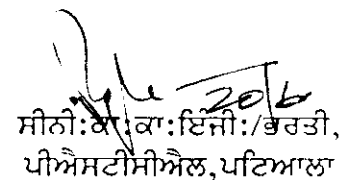 20/6
ਸੀਨੀ:ਕਾ:ਕਾ:ਇੰਜੀ:/ਭਰਤੀ,
ਪੀਐਸਟੀਸੀਐਲ,ਪਟਿਆਲਾ